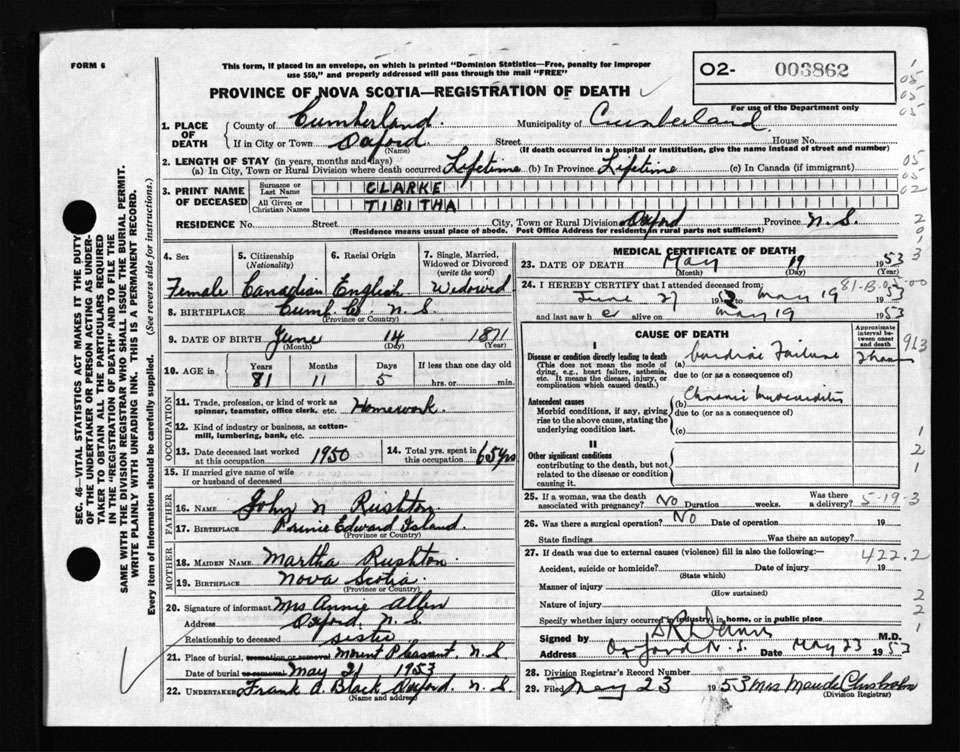 FORM 6
This form, if placed in an envelope, on which is printed "Dominion Statistics—Free, penalty for improper
use $50," and properly addressed will pass through the mail "FREE"
02- 003862
For use of the Department only
PROVINCE OF NOVA SCOTIA—REGISTRATION OF DEATH
1. PLACE OF DEATH County of Cumberland. Municipality of Cumberland
If in City or Town Oxford. Street House No.
(Name) (If death occurred in a hospital or institution, give the name instead of street and number)
2. LENGTH OF STAY (in years, months and days)
(a) In City, Town or Rural Division where death occurred Lifetime (b) In Province Lifetime (c) In Canada (if immigrant)
3. PRINT NAME OF DECEASED Surname or Last Name CLARKE
All Given or Christian Names TIBITHA
RESIDENCE No. Street City, Town or Rural Division Oxford Province N. S.
(Residence means usual place of abode. Post Office Address for residents in rural parts not sufficient)
4. Sex Female
5. Citizenship (Nationality) Canadian
6. Racial Origin English
7. Single, Married, Widowed or Divorced (write the word) Widowed
8. BIRTHPLACE Cumb. Co. N. S.
(Province or Country)
9. DATE OF BIRTH June 14 1871
(Month) (Day) (Year)
10. AGE in Years 81 Months 11 Days 5 If less than one day old hrs. or min.
OCCUPATION
11. Trade, profession, or kind of work as spinner, teamster, office clerk, etc. Homework.
12. Kind of industry or business, as cotton-mill, lumbering, bank, etc.
13. Date deceased last worked at this occupation 1950
14. Total yrs. spent in this occupation 65 yrs
15. If married give name of wife or husband of deceased
FATHER
16. NAME John N Rushton
17. BIRTHPLACE Prince Edward Island.
(Province or Country)
MOTHER
18. MAIDEN NAME Martha Rushton.
19. BIRTHPLACE Nova Scotia.
(Province or Country)
20. Signature of informant Mrs Annie Allen
Address Oxford, N. S.
Relationship to deceased sister
21. Place of burial, cremation or removal Mount Pleasant, N. S.
Date of burial or removal May 21 1953
22. UNDERTAKER Frank A. Black Oxford. N. S.
(Name and address)
MEDICAL CERTIFICATE OF DEATH
23. DATE OF DEATH May 19 1953
(Month) (Day) (Year)
24. I HEREBY CERTIFY that I attended deceased from:
June 27 19 May 19 1953
and last saw h e alive on May 19 1953
CAUSE OF DEATH
Approximate interval between onset and death
I
Disease or condition directly leading to death
(This does not mean the mode of dying, e.g., heart failure, asthenia, etc. It means the disease, injury, or complication which caused death.)
(a) Cardiac Failure
due to (or as a consequence of)
Antecedent causes
Morbid conditions, if any, giving rise to the above cause, stating the underlying condition last.
(b) Chronic Myocarditis
due to (or as a consequence of)
(c)
II
Other significant conditions
contributing to the death, but not related to the disease or condition causing it.
25. If a woman, was the death associated with pregnancy? No Duration weeks. Was there a delivery?
5-19-3
26. Was there a surgical operation? No Date of operation 19
State findings Was there an autopsy?
27. If death was due to external causes (violence) fill in also the following:—
422.2
Accident, suicide or homicide? Date of injury 19
(State which)
Manner of injury
(How sustained)
Nature of injury
Specify whether injury occurred in industry, in home, or in public place
Signed by M.D.
Address Oxford N. S. Date May 23 1953
28. Division Registrar's Record Number
29. Filed May 23 1953 Mrs Maude Chisholm
(Division Registrar)
SEC. 46—VITAL STATISTICS ACT MAKES IT THE DUTY
OF THE UNDERTAKER OR PERSON ACTING AS UNDER-
TAKER TO OBTAIN ALL THE PARTICULARS REQUIRED
IN THE "REGISTRATION OF DEATH" AND TO FILE THE
SAME WITH THE DIVISION REGISTRAR WHO SHALL ISSUE THE BURIAL PERMIT.
WRITE PLAINLY WITH UNFADING INK. THIS IS A PERMANENT RECORD.
Every item of information should be carefully supplied. (See reverse side for instructions.)